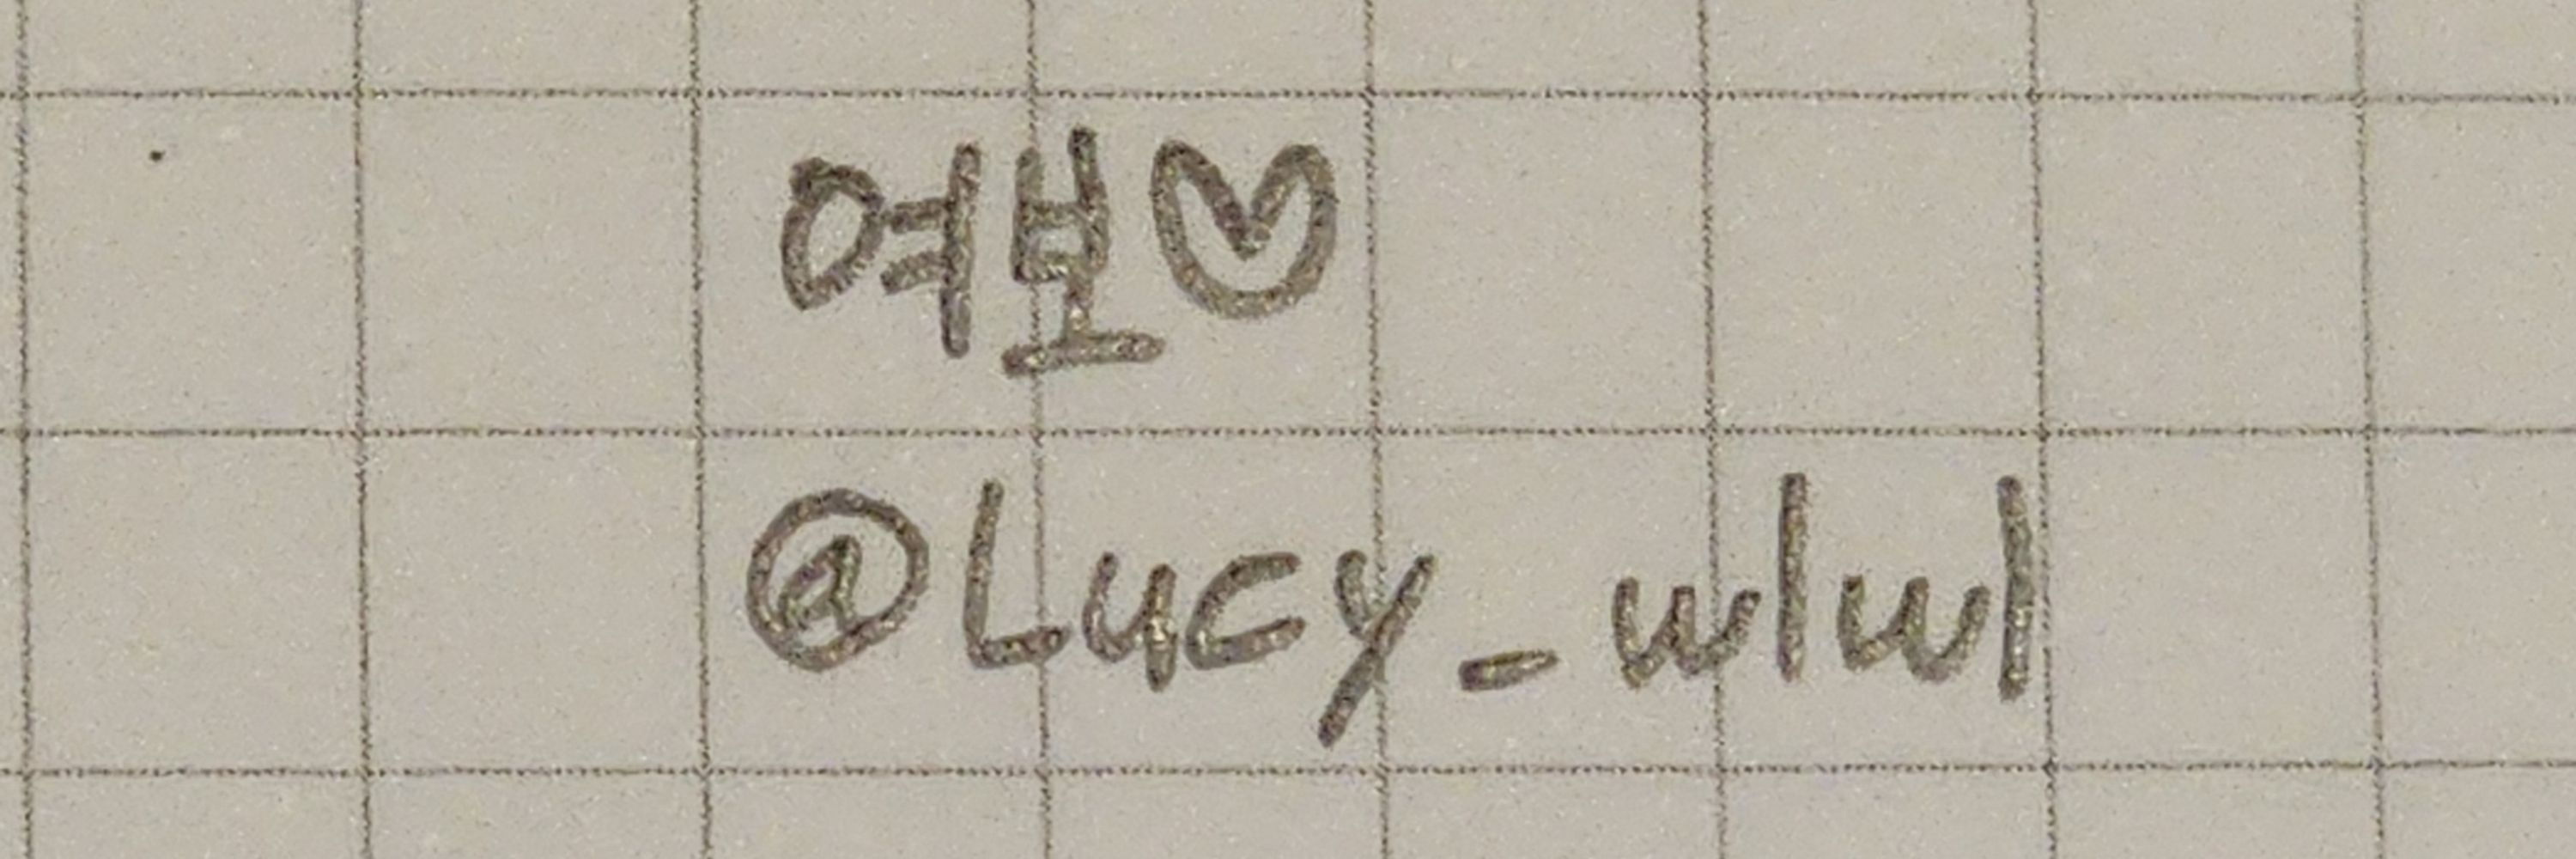 여보♡
@Lucy_w|w|